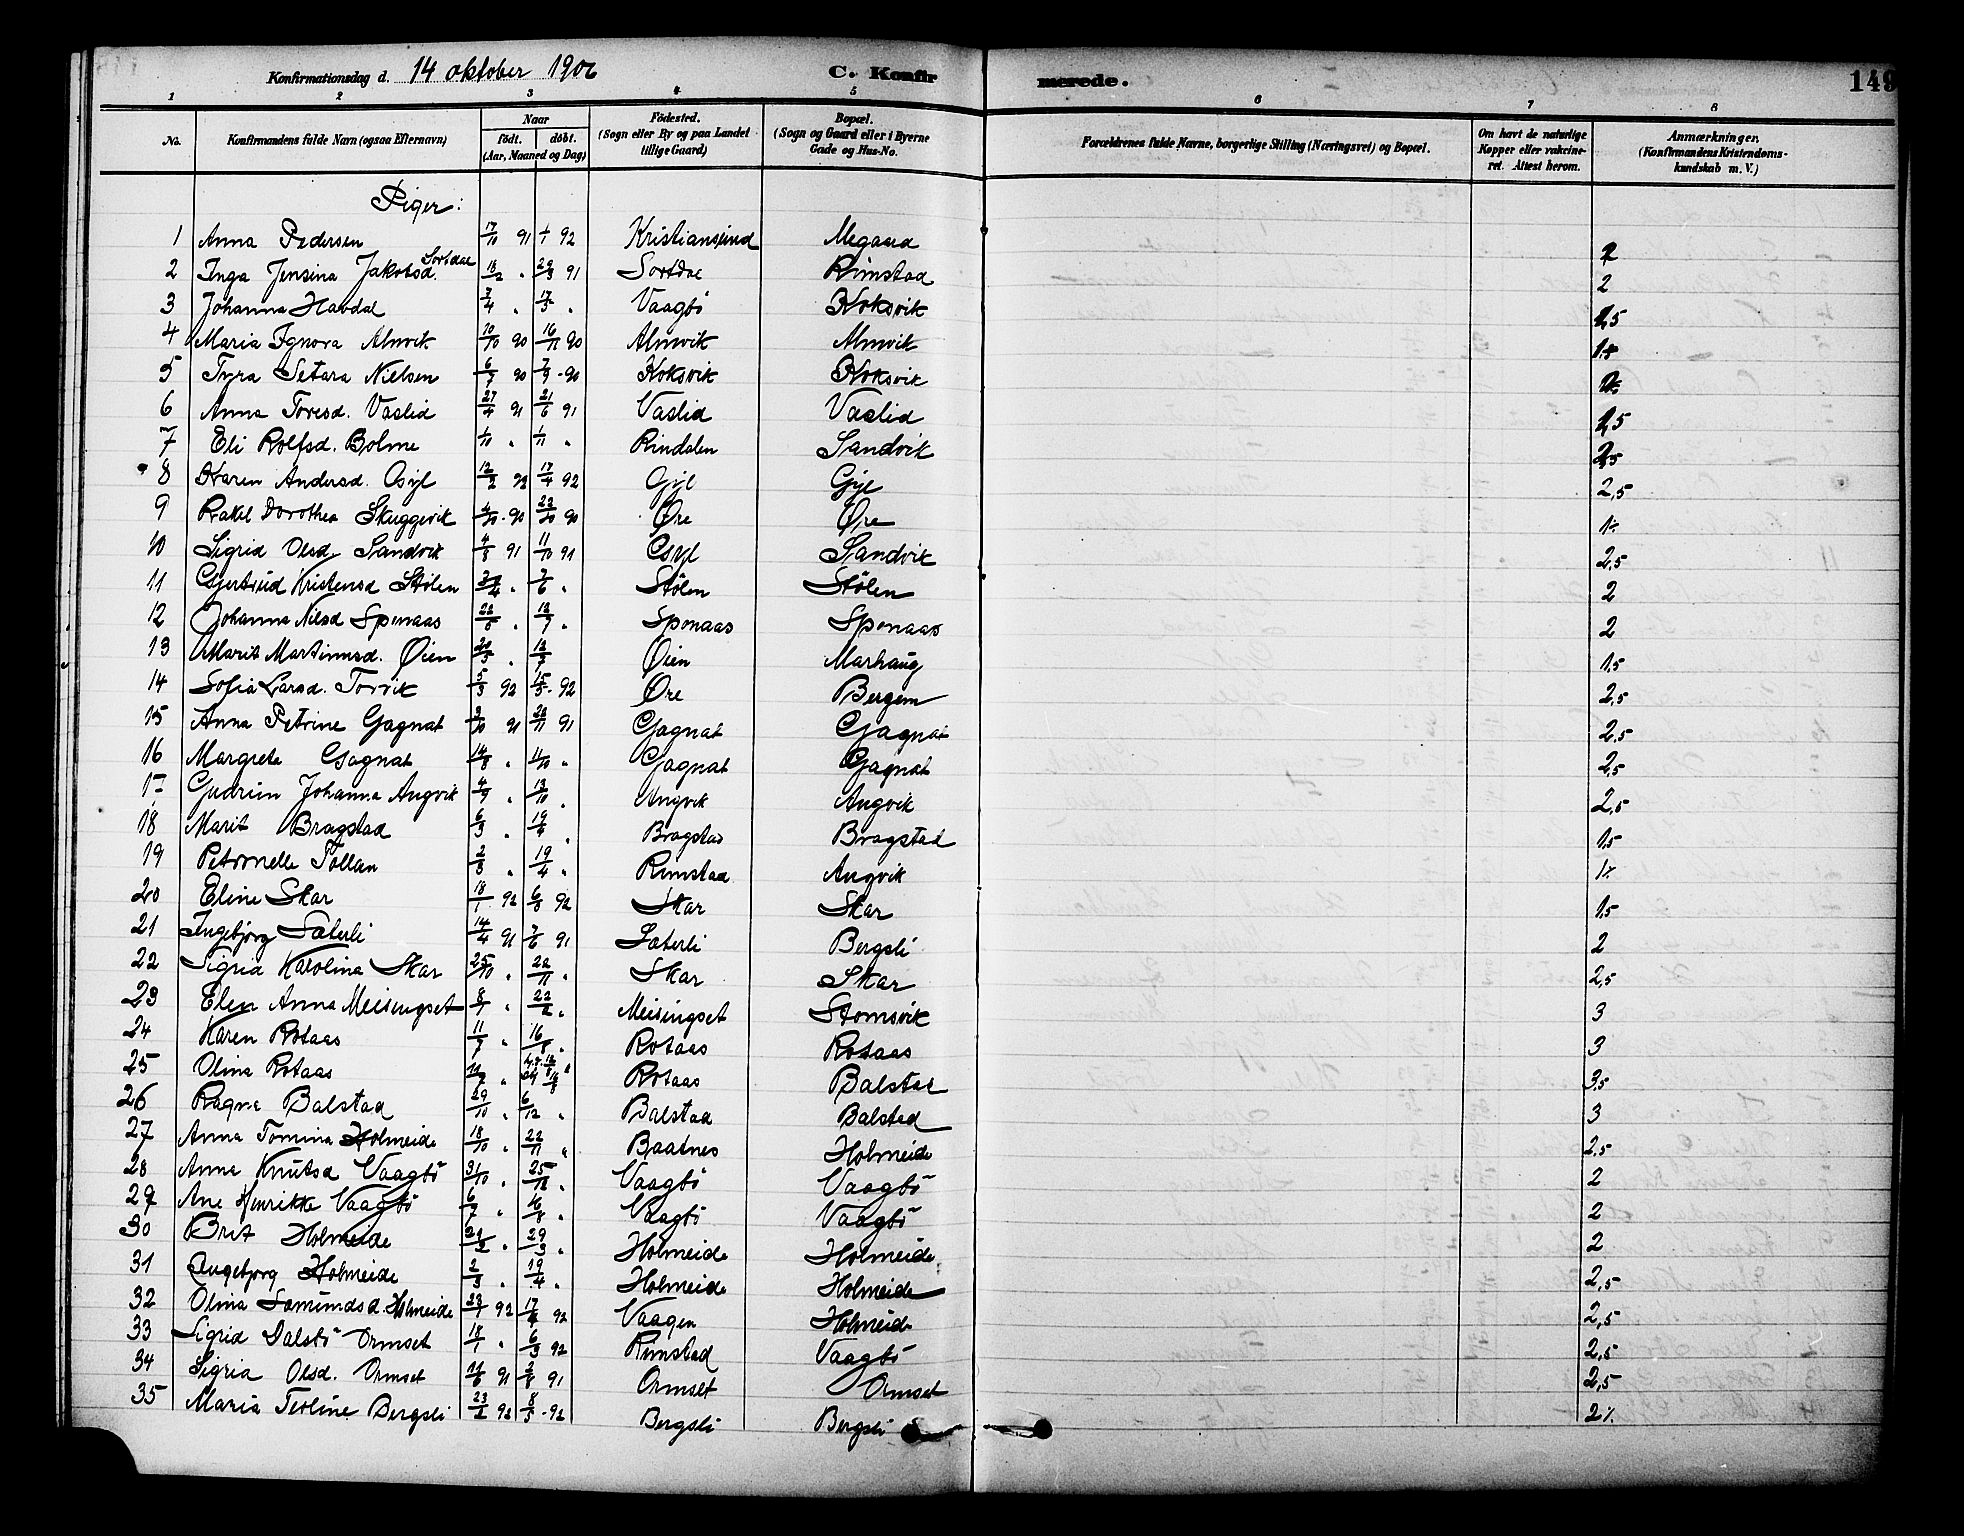 Konfirmationsdag d. 14 oktober 1906 C. Konfirmerede. 149
1 2 3 4 5 6 7 8
No. Konfirmandens fulde Navn (ogsaa Efternavn) Naar født. døbt. (Aar, Maaned og Dag) Fødested. (Sogn eller By og paa Landet tillige Gaard) Bopæl. (Sogn og Gaard eller i Byerne Gade og Hus-No. Forældrenes fulde Navne, borgerlige Stilling (Næringsvei) og Bopæl. Om havt de naturlige Kopper eller vaccineret. Attest herom. Anmærkninger. (Konfirmandens Kristendomskundskab m. V.)
Piger:
1 Anna Pedersen 17/10 91 1/1 92 Kristiansund Megaard
2 Inga Jensina Jakobsd. Sortdal " 91 Sortdal Rimstad 2
3 Johanna Havdal " 17/5 " Vaagbö Koksvik
4 Maria Ignora Almvik 10/10 90 16/11 90 Almvik Almvik
5 Tyra Setara Nielsen 6/7 90 7/9 - 90 Koksvik Koksvik
6 Anna Toresd. Vaslid 27/4 91 21/6 91 Vaslid Vaslid
7 Eli Rolfsd. Bolme 1/10 " 1/11 " Rindalen Sandvik
8 Karen Andersd. Gsyl 12/2 92 17/4 92 Gyl Gyl 2,5
9 Rakel Dorothea Skuggevik 4/10 - 90 90 Øre Øre
10 Sigrid Olsd Sandvik 4/8 91 11/10 91 Gsyl Sandvik 2,5
11 Gjertrud Kristensd Stölen " 7/6 " Stölen Stölen 2
12 Johanna Nilsd Sponaas " 12/7 " Sponaas Sponaas 2
13 Marit Martinusd. Øien " 12/7 Øien Marhaug 1,5
14 Sofia Larsd. Torvik 5/3 92 15/5 - 92 Øre Bergem 2,5
15 Anna Petrine Gagnat 91 22/11 91 Gagnat Gagnat 2,5
16 Margrete Gagnat 14/8 " 11/10 " Gagnat Gagnat 2,5
17 Gudrun Johanna Angvik 4/9 " 13/10 " Angvik Angvik 2,5
18 Marit Bragstad 6/3 " 19/4 " Bragstad Bragstad 1,5
19 Petronelle Tollan 2/3 " 19/4 " Rimstad Angvik
20 Eline Skar 18/1 92 6/3 92 Skar Skar 1,5
21 Ingebjorg Sæterli 14/4 91 7/6 91 Sæterli Bergsli 2
22 Sigrid Karolina Skar 25/10 " 22/11 " Skar Skar 2,5
23 Elen Anna Meisingset 8/1 " 22/2 " Meisingset Stomsvik 3
24 Karen Rotaas 11/7 " 16/8 " Rotaas Rotaas 3
25 Olina Rotaas 11/7 " Rotaas Balstad 3,5
26 Ragna Balstad 29/10 " 6/12 " Balstad Balstad 3
27 Anna Tomina Holmeide 18/10 " 22/11 " Baatnes Holmeide 2,5
28 Anna Knutsd Vaagbö 31/10 " 25/12 " Vaagbö Vaagbö 2
29 Ane Henrikke Vaagbö 6/7 " 16/8 " Vaagbö Vaagbö 2
30 Brit Holmeide " 29/3 " Holmeide Holmeide 2
31 Ingebjorg Holmeide 2/3 " 19/4 " Holmeide Holmeide 2,5
32 Olina Samundsd. Holmeide 23/1 92 17/4 92 Vaagen Holmeide 2,5
33 Sigrid Dalsbö Ormset 18/1 " 6/3 92 Rimstad Vaagbö 2,5
34 Sigrid Olsd. Ormset 11/6 91 2/8 91 Ormset Ormset 2,5
35 Maria Teoline Bergsli 23/2 92 8/5 - 92 Bergsli Bergsli